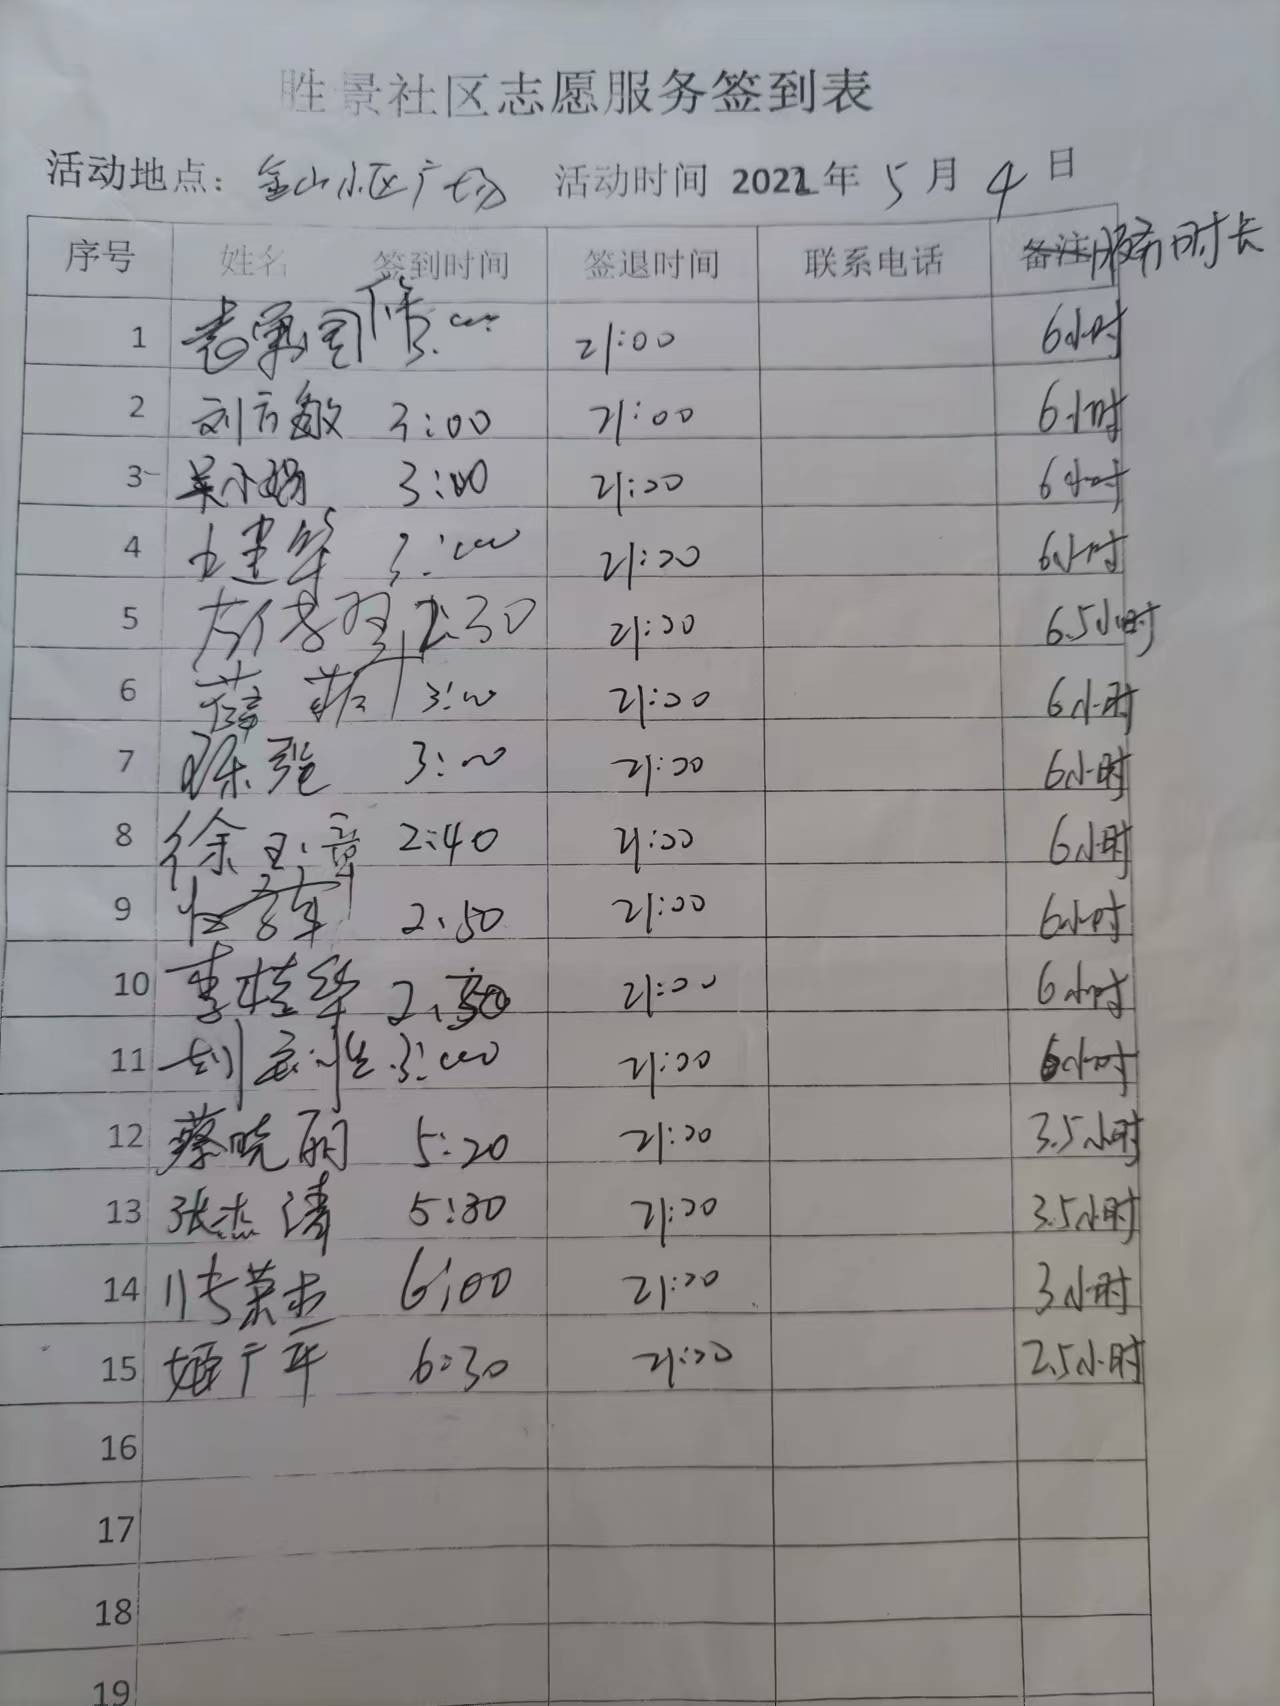 胜景社区志愿服务签到表
活动地点：金山小区广场 活动时间 2022年5月4日
序号 姓名 签到时间 签退时间 联系电话 备注服务时长
1 3:00 21:00 6小时
2 刘方敏 3:00 21:00 6小时
3 吴小娟 3:00 21:00 6小时
4 建华 3:00 21:00 6小时
5 2:30 21:00 6.5小时
6 薛 3:00 21:00 6小时
7 陈 3:00 21:00 6小时
8 徐玉章 2:40 21:00 6小时
9 2:50 21:00 6小时
10 李桂华 2:50 21:00 6小时
11 刘 3:00 21:00 6小时
12 蔡晓丽 5:20 21:00 3.5小时
13 张杰清 5:30 21:00 3.5小时
14 6:00 21:00 3小时
15 姬广平 6:30 21:00 2.5小时
16
17
18
19